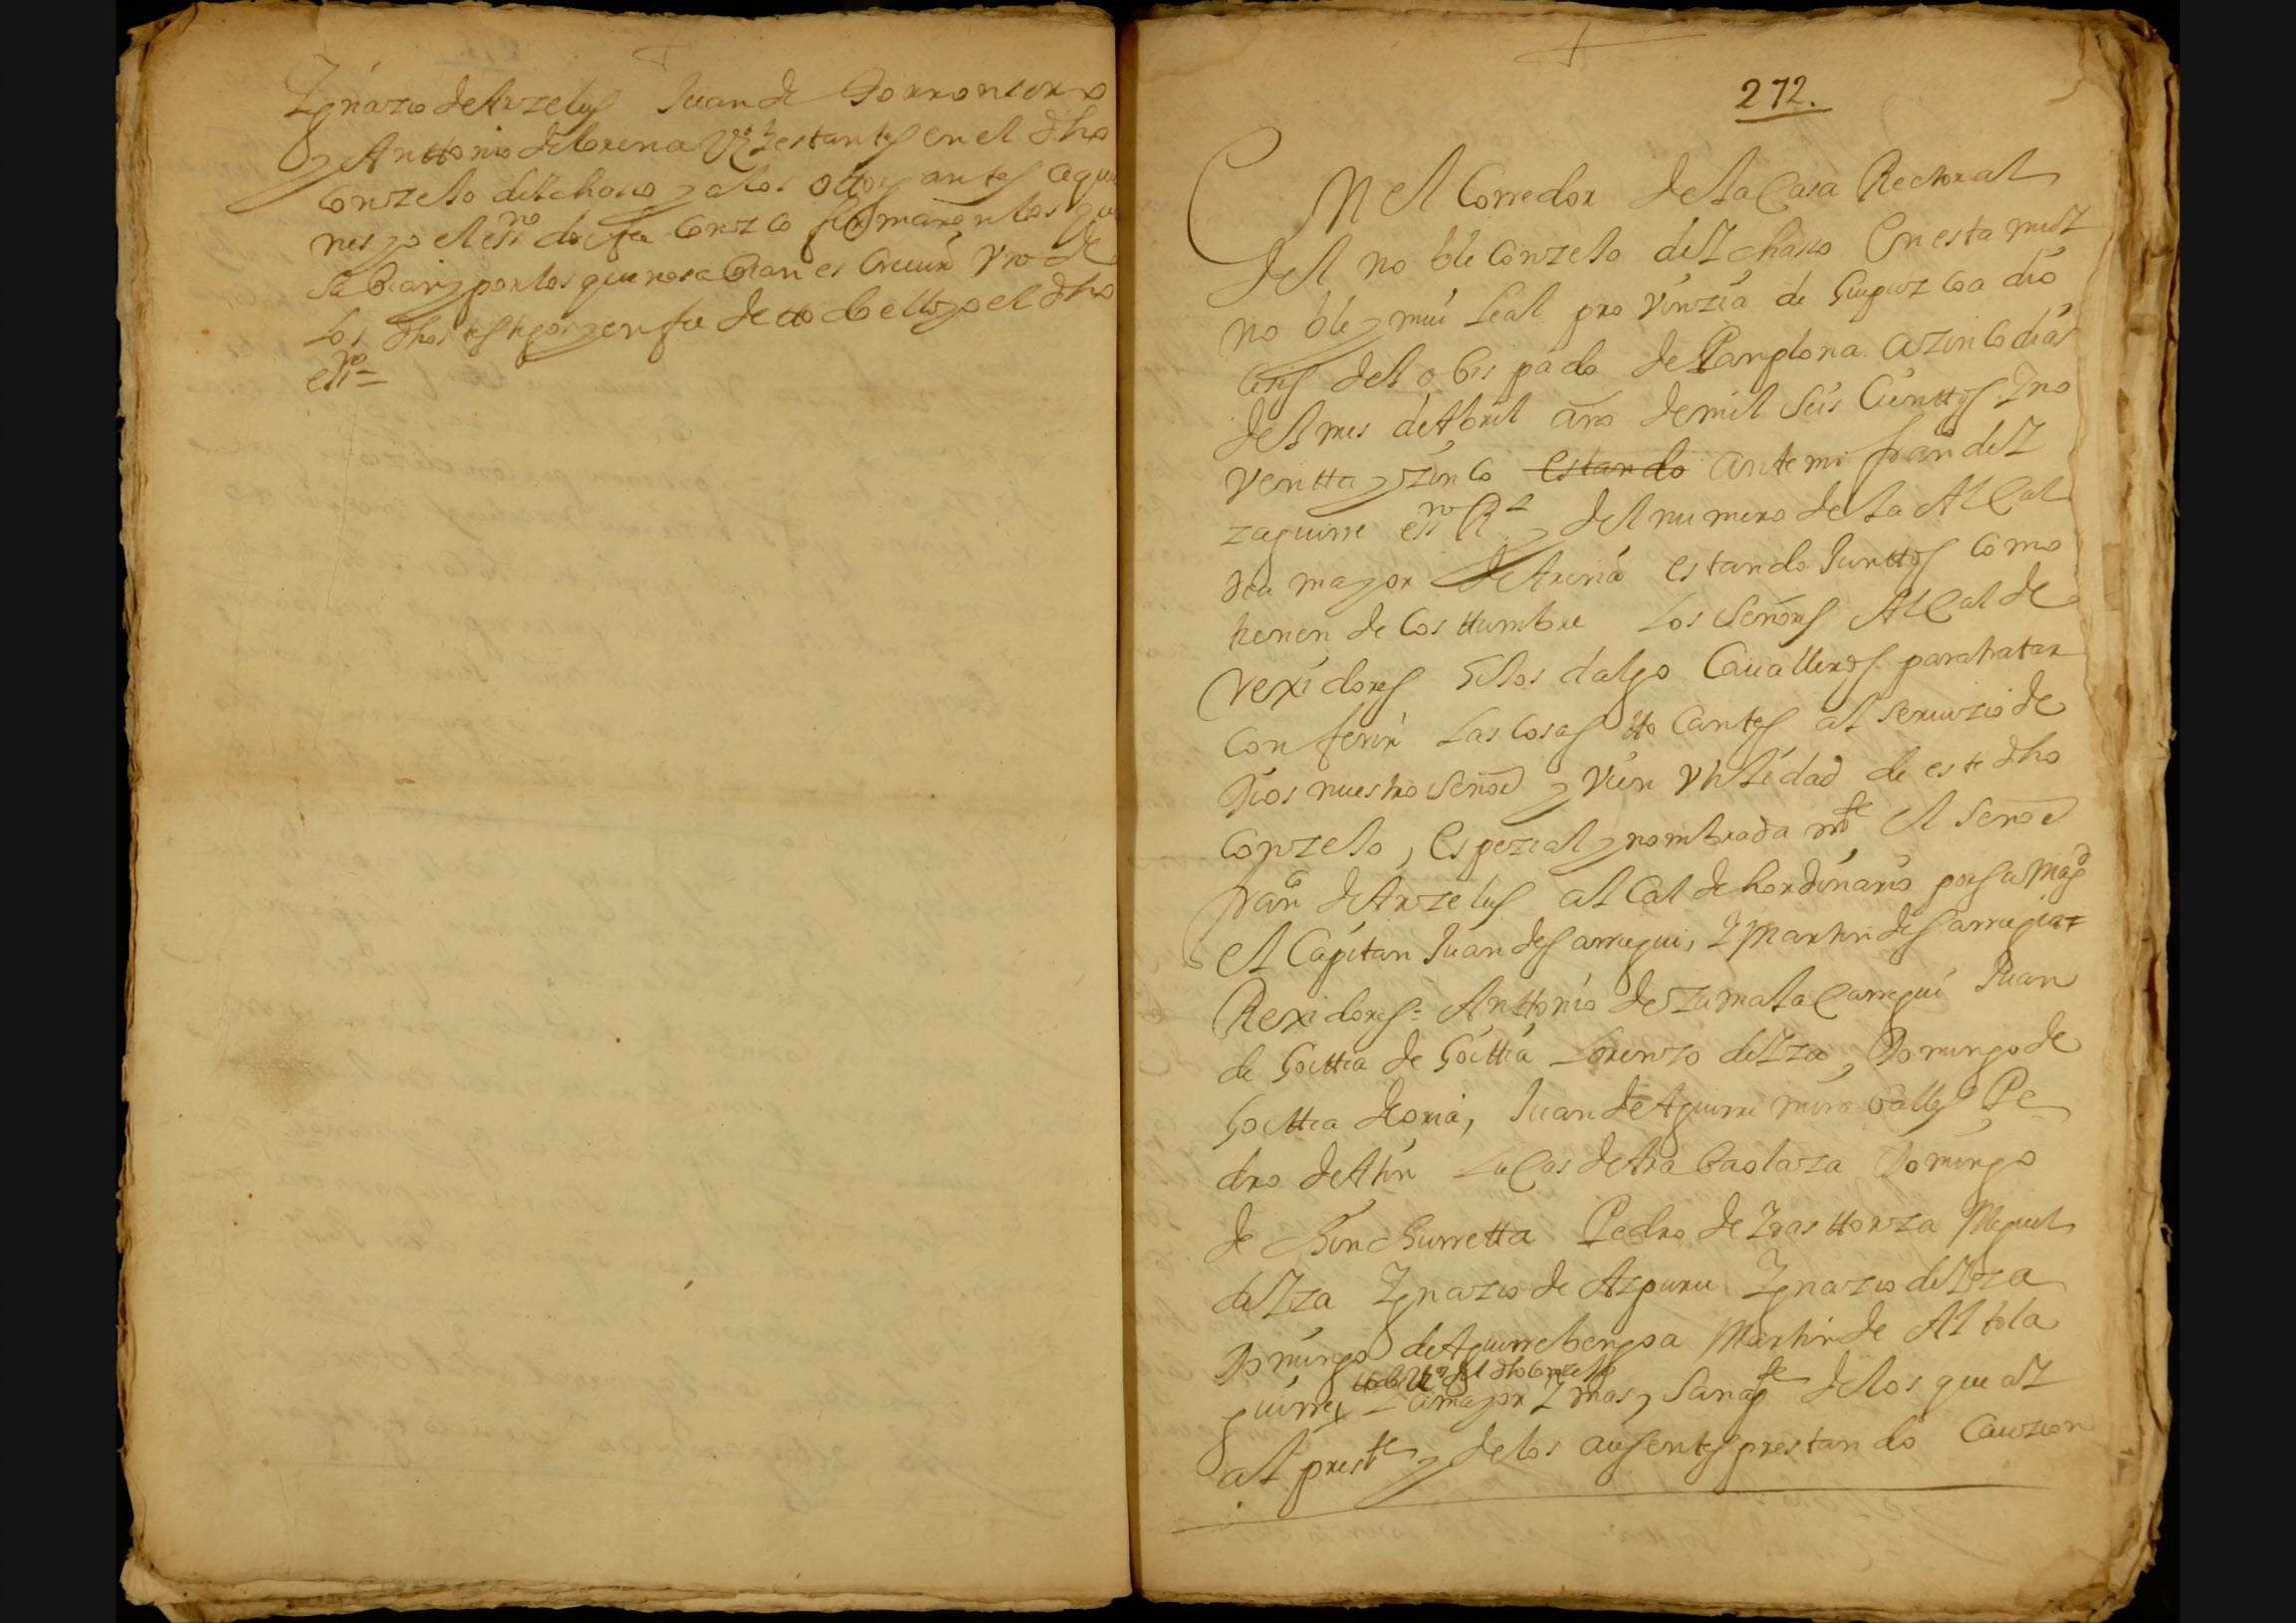 Ygnazio de Arzelus Juan de Gorronsoro
y Anttonio de lorena Vzos estantes en el dho
conzejo de Ychaso y a los ottorgantes a quie
nes yo el essno doi fee conozco firmaron los que
sabian y por los que no sabian escreuir vno de
los dhos testigos y en fee de ello yo el dho
essno =
272.
En el Corredor de la Casa Rectoral
del noble Conzejo de Ychaso En esta muy
noble y mui Leal prouinzia de Guipuzcoa dio
cesis del obispado de Pamplona a zinco dias
del mes de Abril año de mil seis cienttos y no
ventta y zinco estando ante mi fran de Y
zaguirre essno Rl y del numero de la Alcal
dia mayor de Areria estando Junttos como
tienen de costtumbre Los Señores Alcalde
rexidores hijos dalgo Caualleros para tratar
conferir Las cosas ttocantes al seruizio de
Dios nuestro Señor y vien vtilidad de este dho
conzejo, espezial y nombradamte el Señor
franco de Arzelus alcalde hordinario por su Magd
el Capitan Juan de Sarregui, y Martin de Sarregui =
Rexidores = Anttonio de Zumalacarregui Juan
de Goittia de Goittia Lorenzo de Yza, Domingo de
Goittia de oria, Juan de Aguirre miraballes Pe
dro de Atin Lucas de Arabaolaza Domingo
de Chinchurretta Pedro de Yrastorza Miguel
de Yza Ygnazio de Azpuru Ygnazio de Yza
Domingo de Aguirrebengoa Martin de Altola
todos Vzos del dho conzejo
guirre, La mayor y mas sana pte de los que ay
al preste y de los ausentes prestando Cauzion